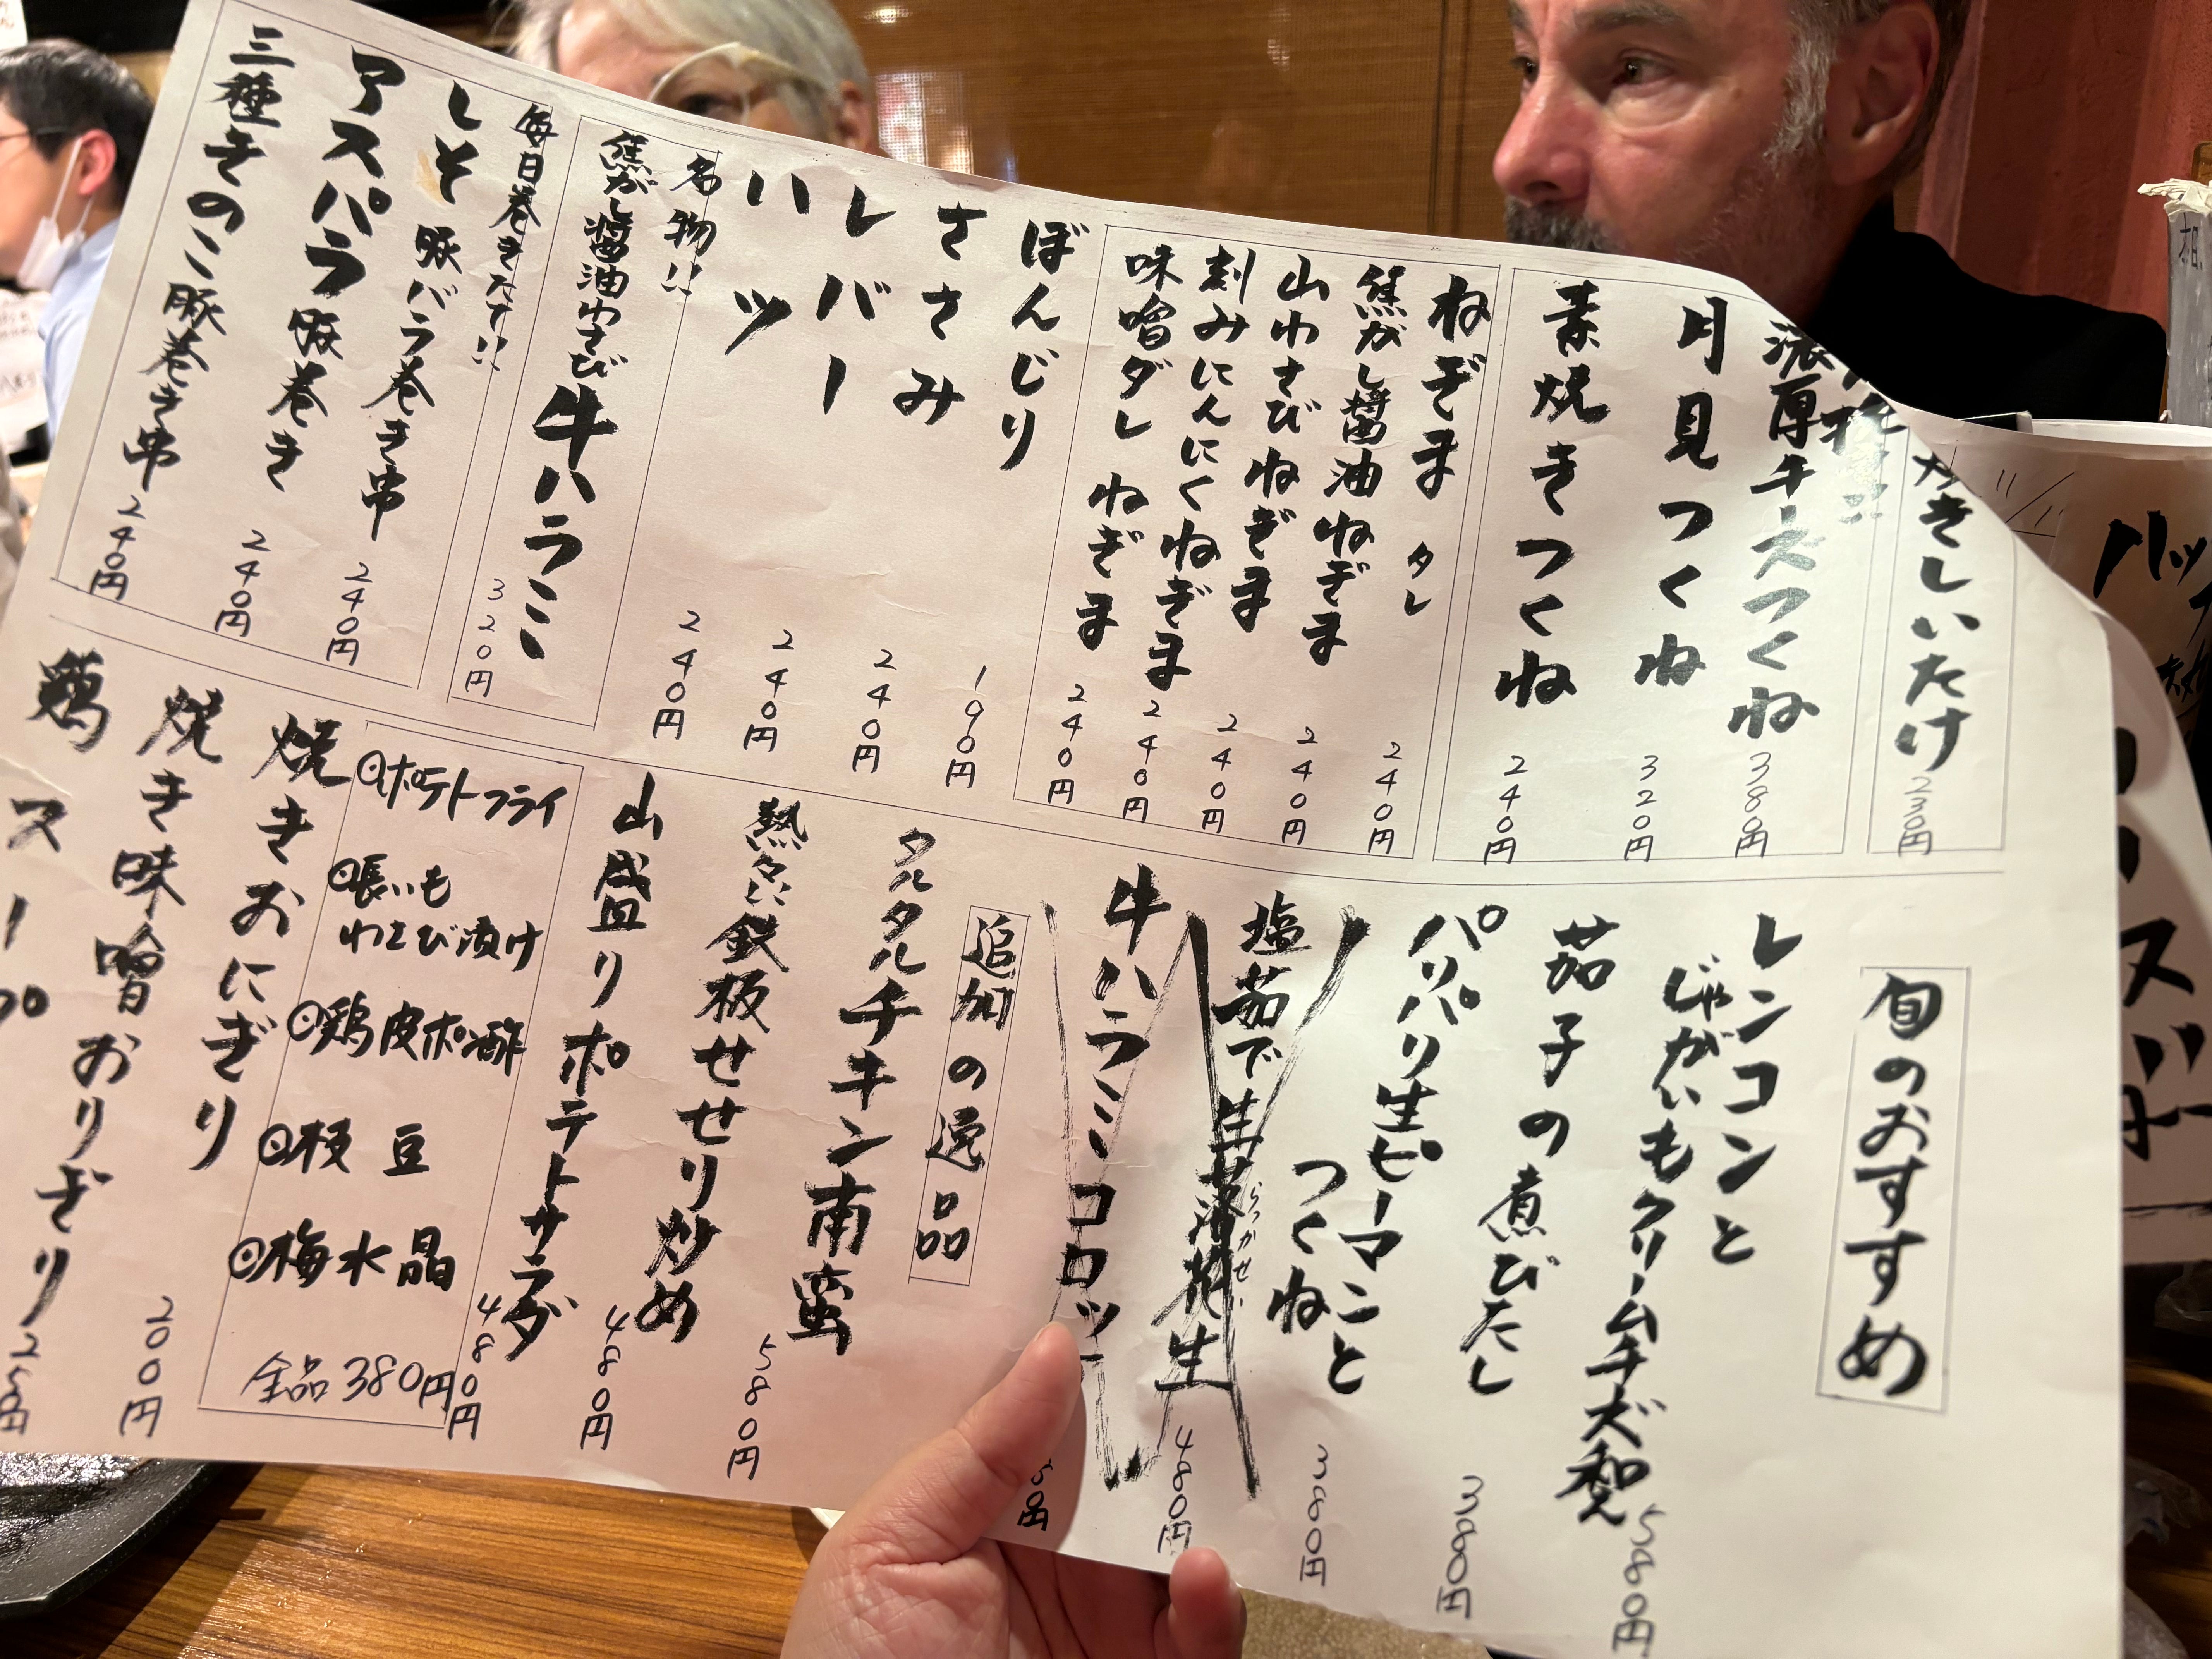 やきしいたけ 230円
濃厚チーズつくね 380円
月見つくね 320円
素焼きつくね 240円
ねぎま タレ 240円
焦がし醤油ねぎま 240円
山わさびねぎま 240円
刻みにんにくねぎま 240円
味噌ダレねぎま 240円
ぼんじり 190円
ささみ 240円
レバー 240円
ハツ 240円
名物!!
焦がし醤油わさび牛ハラミ 320円
毎日巻きたて!!
しそ豚バラ巻き串 240円
アスパラ豚巻き 240円
三種きのこ豚巻き串 240円
旬のおすすめ
レンコンと
じゃがいもクリームチーズ和え 580円
茄子の煮びたし 380円
パリパリ生ピーマンと
つくね 380円
塩茹で生落花生 480円
らっかせい
牛ハラミコロッケ
円
追加の逸品
タルタルチキン南蛮 580円
熱々!!鉄板せせり炒め 480円
山盛りポテトサラダ 480円
ポテトフライ
長いも
わさび漬け
鶏皮ポン酢
枝豆
梅水晶
全品380円
焼きおにぎり 200円
焼き味噌おりぎり 25円
鶏スープ